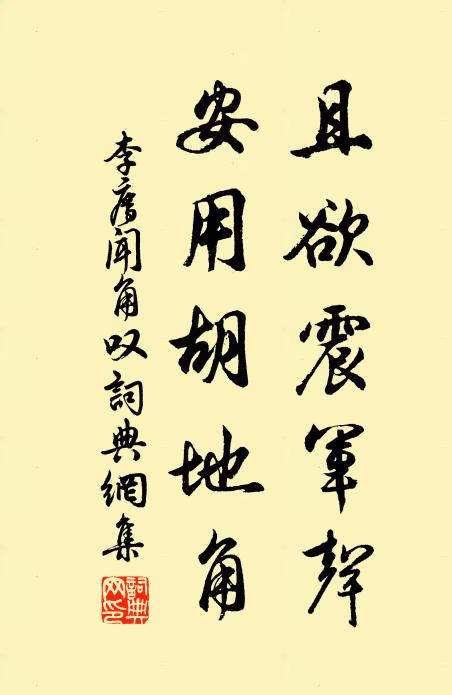 且欲震軍聲
安用胡地角
李廌聞角叹詞典網集
詞典網印